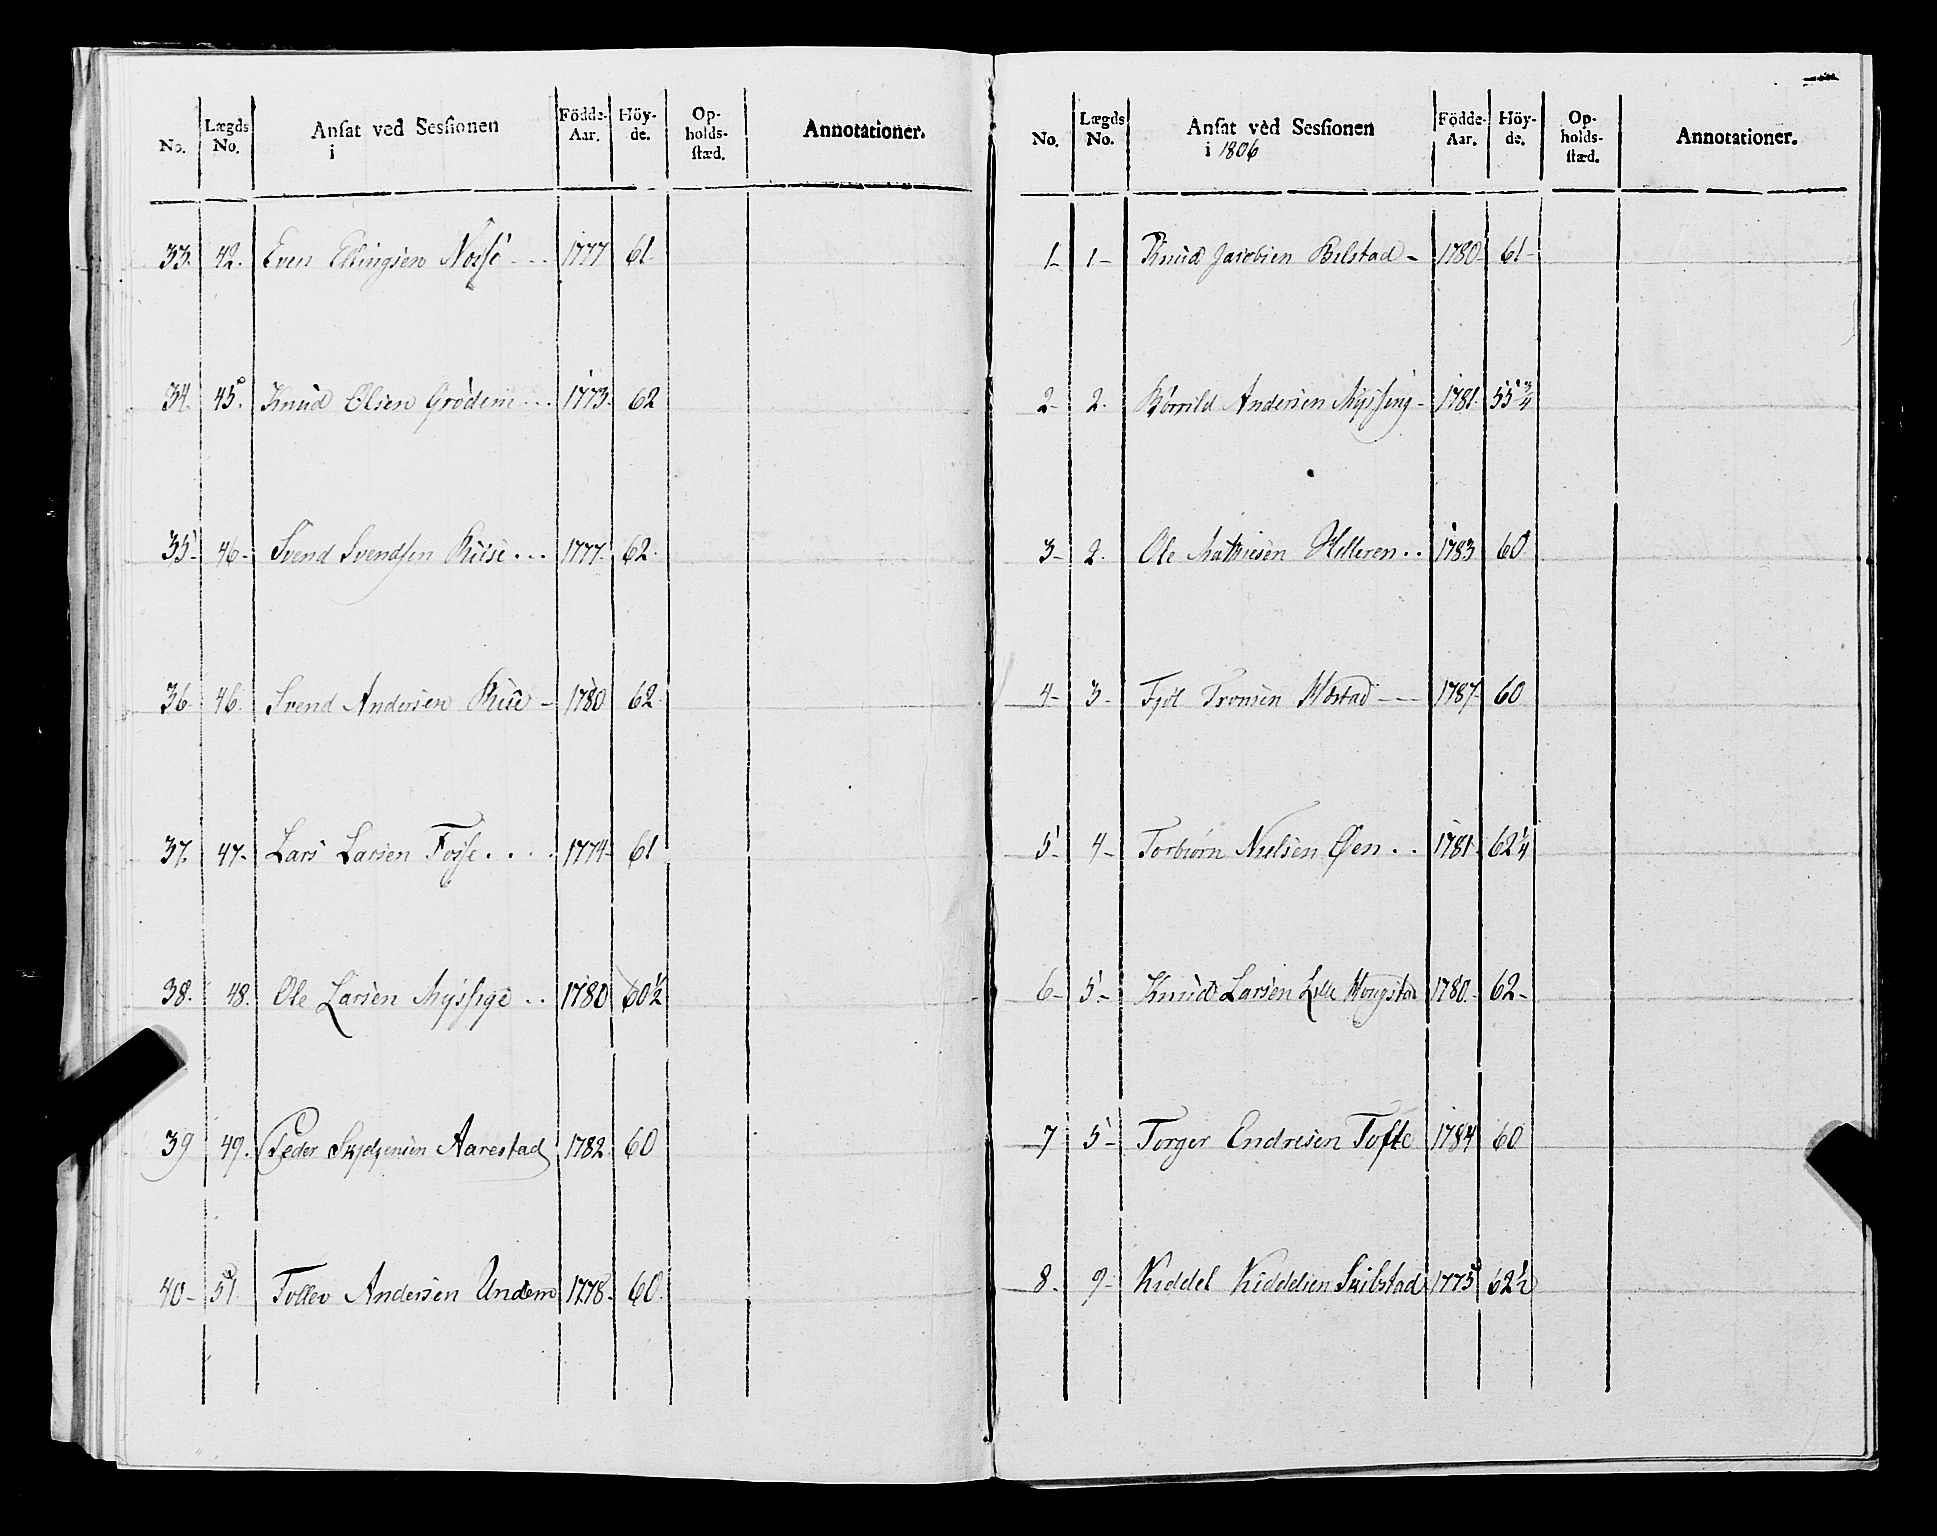 No. Lægds No. Ansat ved Sessionen i Födde-Aar. Höy-de. Op-holds-stæd. Annotationer.
33. 42. Even Ellingsen 1777 61
34. 45. Knud Olsen Grödem 1773. 62
35 46 Svend Svendsen Riise 1777 62
36 46 Svend Andersen Riise 1780 62
37. 47. Lars Larsen Fosse 1774 61
38. 48. Ole Larsen Myssige 1780 60½
39 49. Peder Aarestad 1782 60
40 51 Tollev Andersen Undem 1778 60
No. Lægds No. Ansat ved Sessionen i 1806 Födde-Aar. Höy-de. Op-holds-stæd. Annotationer.
1 1 Knud Jacobsen Belstad 1780 61
2 2. Börrild Andersen Myssing 1781 55¾
3 2. Ole Mathiesen Helleren 1783 60
4 3 Tronsen 1787 60
5 4 Torbiörn Nielsen Øen 1781 62¼
6 5 Knud Larsen Lille 1780 62
7 5 Torger Endresen Tofte 1784 60
8. 9 Kiddel Kiddelsen Skibstad 1775 62½